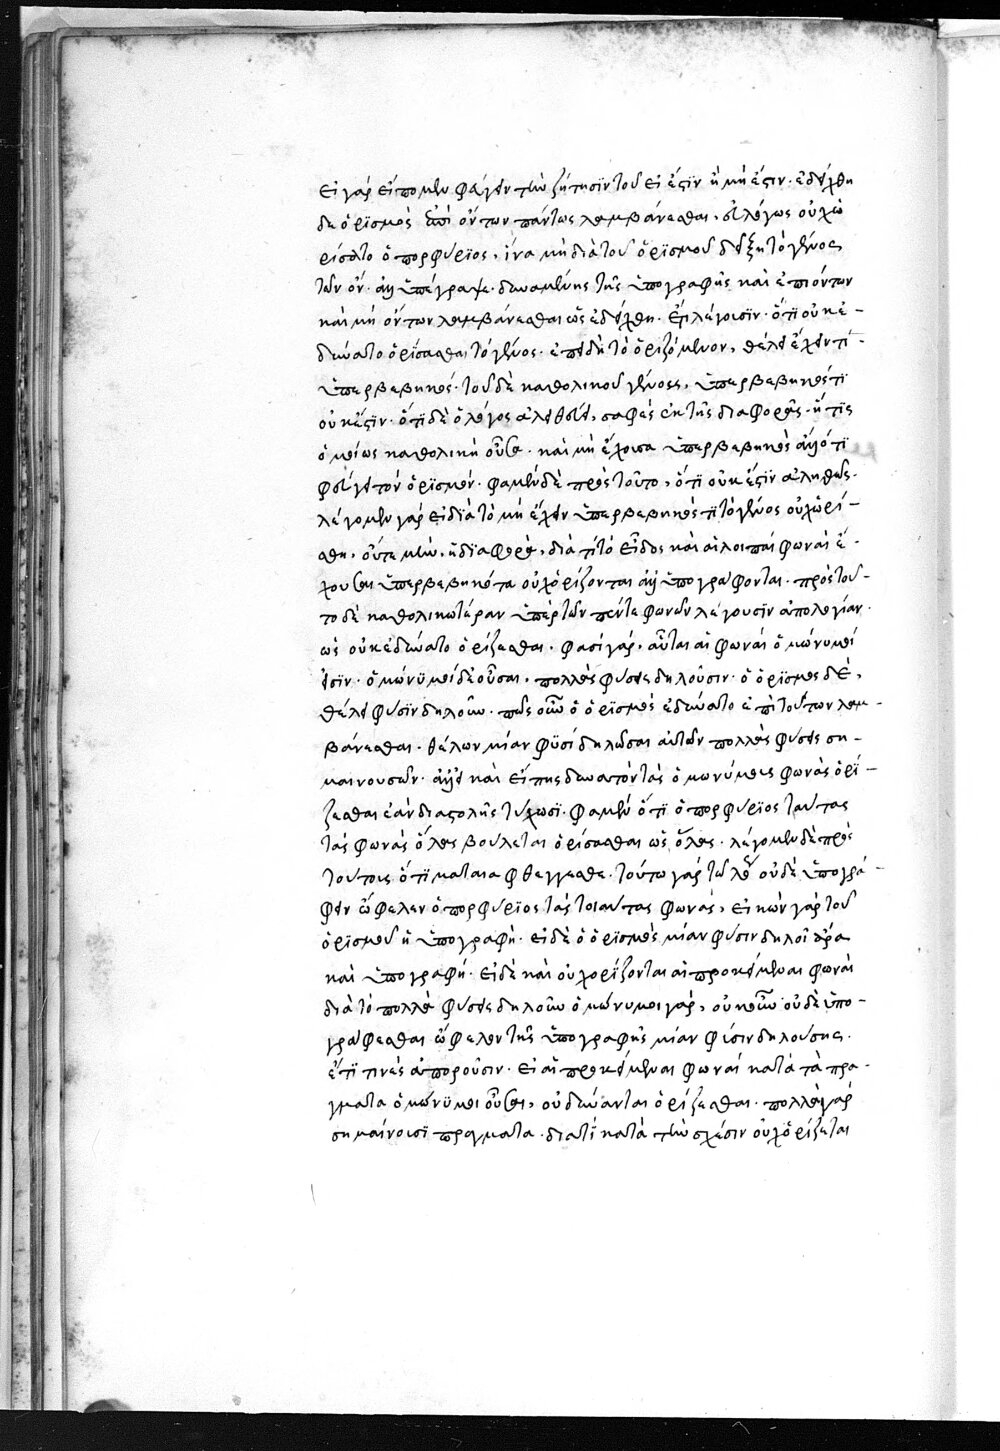 εἰ γάρ εἴπομεν φεύγειν τὴν ζήτησϊν τοῦ εἰ ἔςϊν ἢ μὴ ἔςιν· ἐδείχθη
δὲ ὁρϊσμὸς ἐπὶ ὄντων πάντως λαμβάνεσθαι, εὐλόγως οὐχ ὡ
ρίσατο ὁ πορφύρϊος, ἵνα μὴ διὰ τοῦ ὁρϊσμοῦ δείξῃ τὸ γένος
τῶν ὄν· ἀλλ' ὑπέγραψε· δυναμένης τῆς ὑπογραφῆς καὶ ἐπι ὄντων
καὶ μὴ ὄντων λαμβάνεσθαι ὡς ἐδείχθη· ἔτι λέγουσϊν· ὅτϊ οὐκ ἐ-
δύνατο ὁρίσασθαι τὸ γένος· ἐπειδὴ τὸ ὁριζόμενον, θέλει ἔχειν τί-
ὑπερβεβηκός· τοῦ δὲ καθολικοῦ γένους, ὑπερβεβηκός τϊ
οὐκ ἔςϊν· ὅτϊ δὲ ὁ λόγος ἀληθεύει, σαφὲς ἐκ τῆς διαφορᾶς· ἥτϊς
ὁμοίως καθολικὴ οὖσα· καὶ μὴ ἔχουσα ὑπερβεβηκὸς αὐτό τϊ
φεύγει τὸν ὁρϊσμόν· φαμὲν δὲ πρὸς τοῦτο, ὅτϊ οὐκ ἔςϊν ἀληθῶς·
λέγομεν γάρ εἰ δϊὰ τὸ μὴ ἔχειν ὑπερβεβηκός τϊ τὸ γένος οὐχ ὡρί-
σθη, οὔτε μὴν, ἡ δϊαφορά, διὰ τί τὸ εἶδος καὶ αἱ λοιπαί φωναὶ ἔ-
χουσαι ὑπερβεβηκότα οὐχ ὁρίζονται ἀλλ' ὑπογράφονται· πρὸς τοῦ-
το δὲ καθολικωτέραν ὑπὲρ τῶν πέντε φωνῶν λέγουσϊν ἀπολογίαν·
ὡς οὐκ ἐδύνατο ὁρίζεσθαι· φασί γάρ, αὗται αἱ φωναί ὁμώνυμοί
εἰσϊν· ὁμώνϋμοί δὲ οὖσαι, πολλὰς φύσεις δηλοῦσιν· ὁ ὁρϊσμὸς δὲ,
θέλει φύσϊν δηλοῦν· πῶς οὖν ὁ ὁρϊσμὸς ἐδύνατο ἐπὶ τούτων λαμ-
βάνεσθαι· θέλων μίαν φϋσϊ δηλῶσαι αὐτῶν πολλὰς φύσεις ση-
μαινουσῶν· ἀλλ' εἰ καὶ εἴπῃς δυνατὸν τὰς ὁμωνύμους φωνὰς ὁρϊ-
ζεσθαι ἐὰν διαςολῆς τύχωσϊ· φαμὲν ὅτϊ ὁ πορφύρϊος ταύτας
τὰς φωνὰς ὅλας βούλεται ὁρίσασθαι ὡς ὅλας· λέγομεν δὲ πρὸς
τούτοις ὅτϊ μάταια φθέγγεσθε· τούτω γάρ τῷ λόγῳ οὐδὲ ὑπογρά-
φειν ὤφελεν ὁ πορφύρϊος τὰς τοιαύτας φωνάς, εἰκών γάρ τοῦ
ὁρϊσμοῦ ἡ ὑπογραφή· εἰ δὲ ὁ ὁρϊσμὸς μίαν φύσιν δηλοῖ ἄρα
καὶ ὑπογραφή· εἰ δὲ καὶ οὐχ ορίζονται αἱ προκείμεναι φωναὶ
διὰ τὸ πολλὰς φύσεις δηλοῦν ὁμώνυμοι γάρ, οὐκοῦν οὐδὲ ὑπο-
γράφεσθαι ὤφελον τῆς ὑπογραφῆς μίαν φύσιν δηλούσης·
ἔτϊ τινὲς ἀποροῦσιν· εἰ αἱ προκείμεναι φωναί κατὰ τὰ πρά-
γματα ὁμώνϋμοι οὖσαι, οὐ δύνανται ὁρίζεσθαι· πολλὰ γάρ
σημαίνουσϊ πραγματα· διατί κατὰ τὴν σχέσιν οὐχ ὁρίζεται